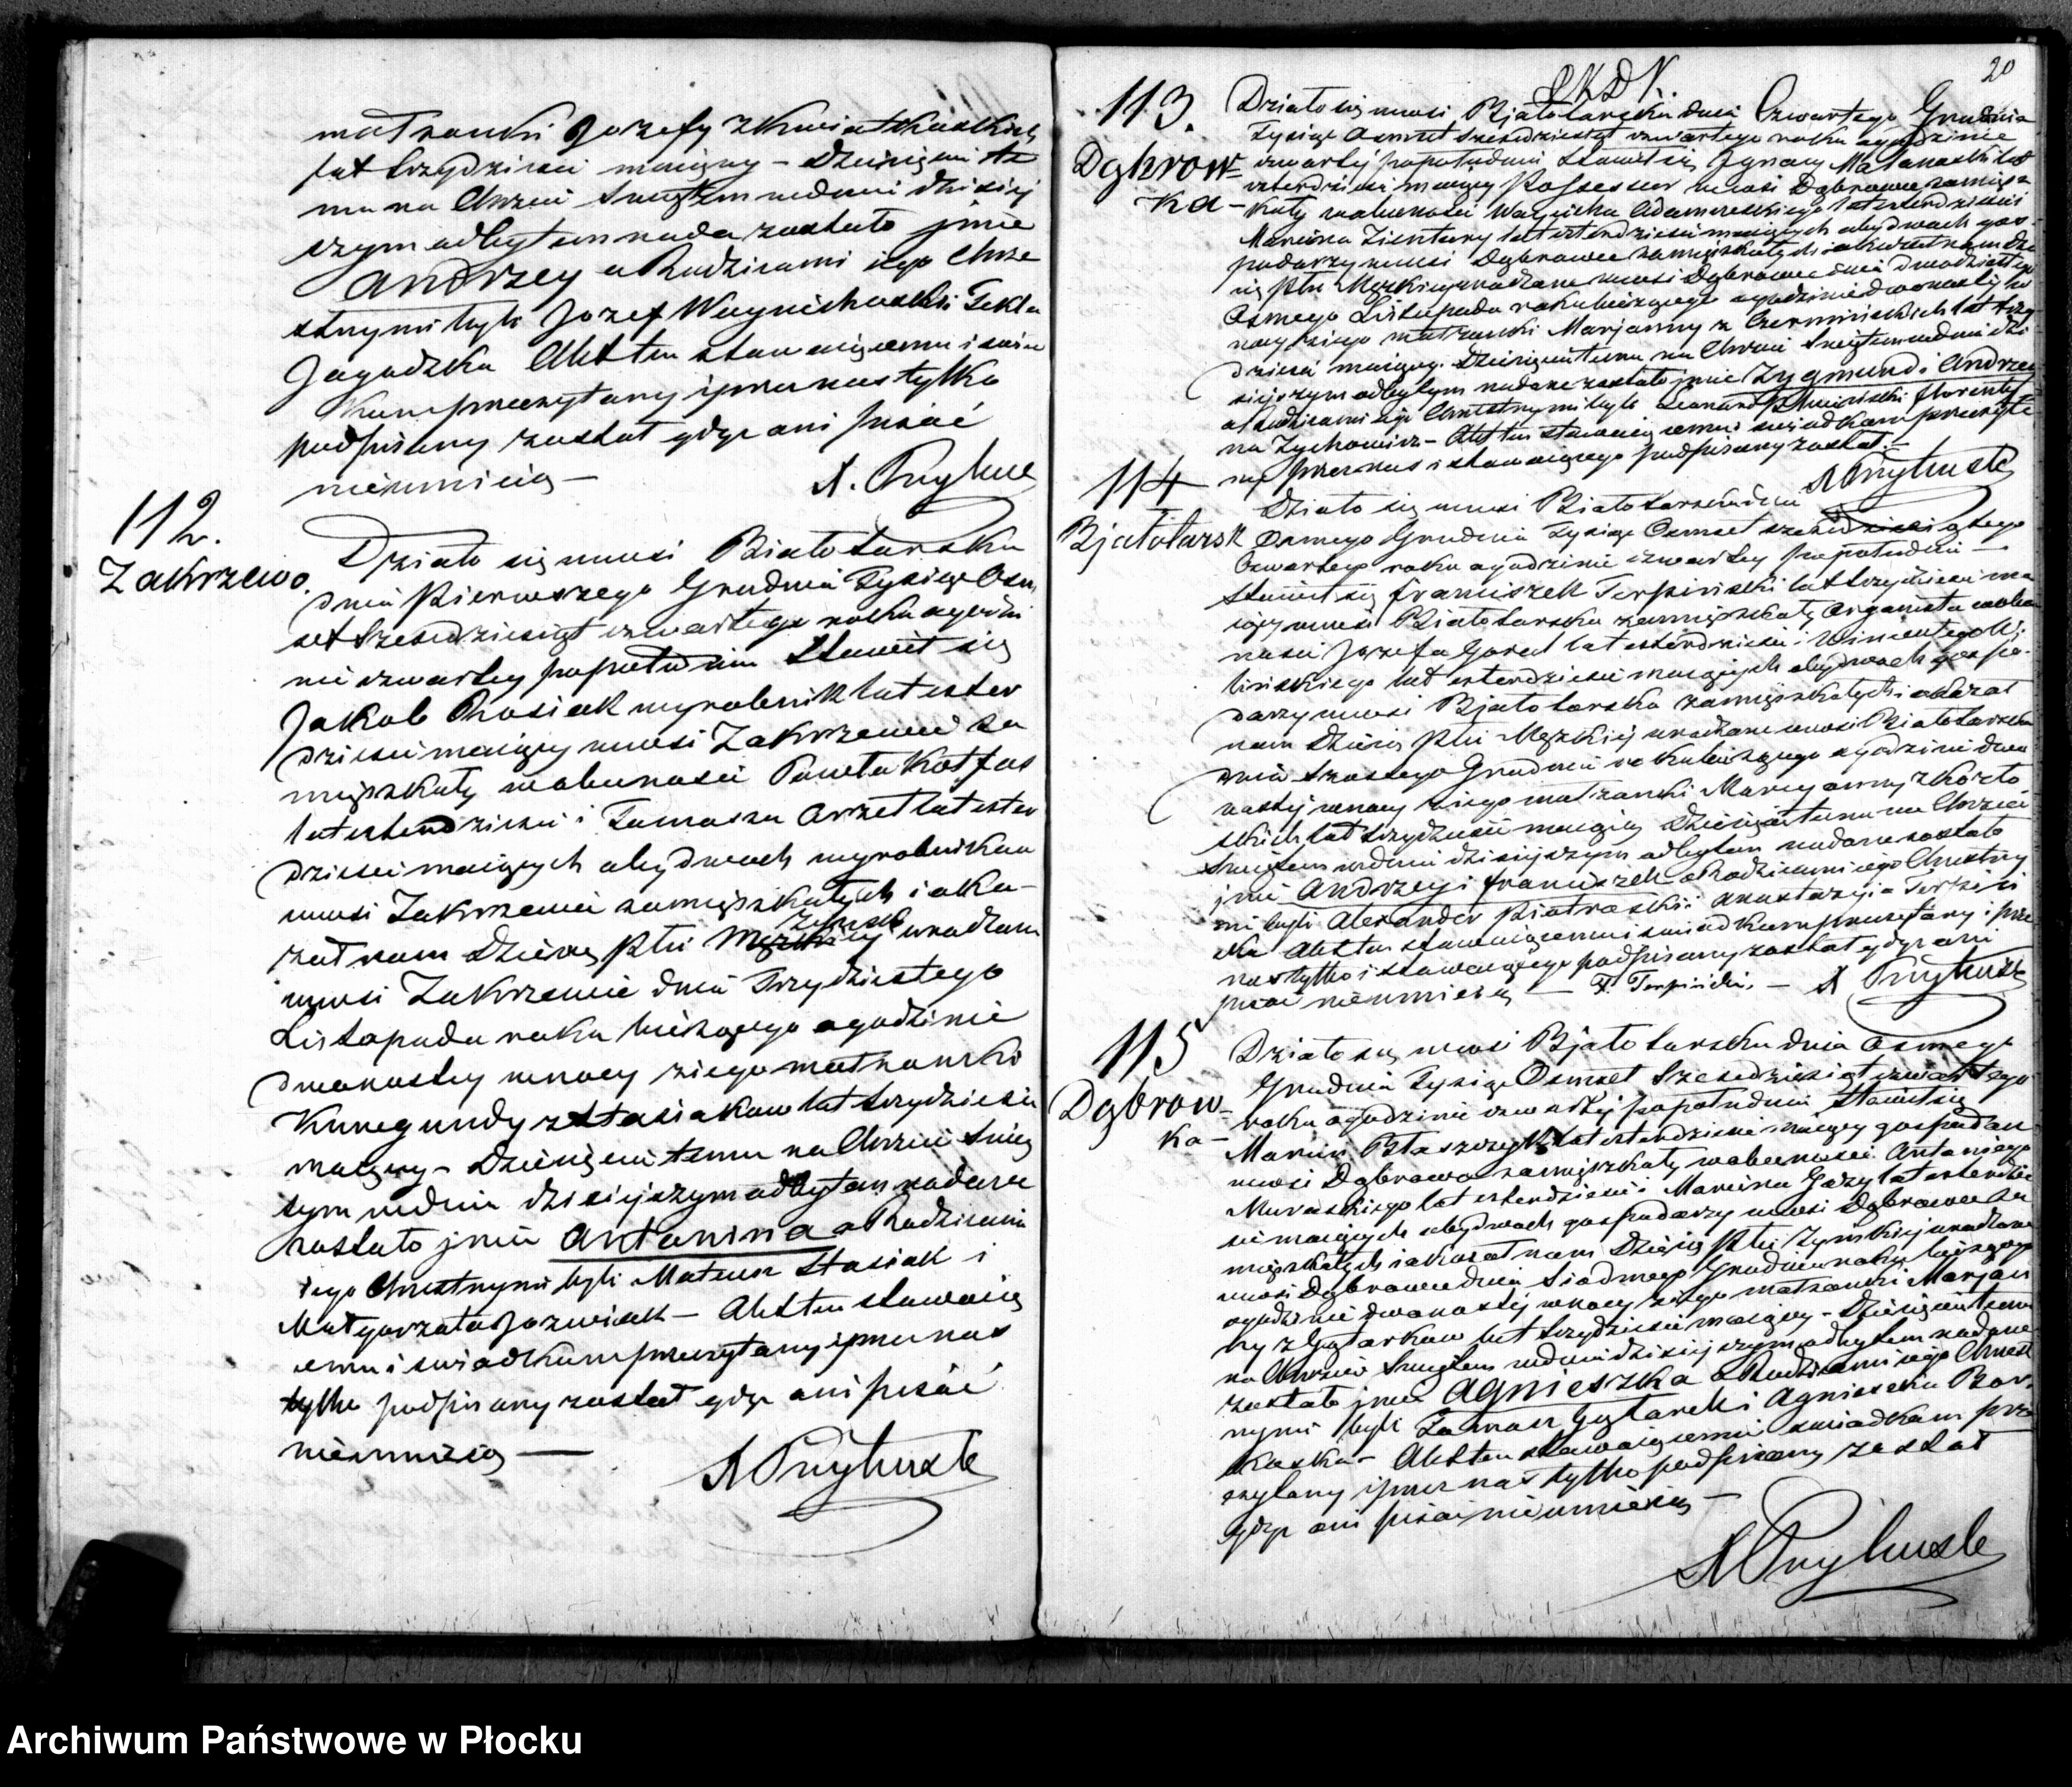 małżonki Jozefy z Kwiatkoskich
lat trzydzieści maiący – Dziecięciu te
mu na Chrzcie Swiętem w dniu dzisiej
szym odbytem nada zostało jmie
Andrzey a Rodzicami iego Chrze
stnymi byli Jozef Woynichoski Tekla
Jagodzka Akt ten stawaiącemu i świa
kom przeczytany i przez nas tylko
podpisany został gdyż oni pisać
nieumieią —
A. Przybysz
112.
Zakrzewo.
Działo się w wsi Białotarsku
dnia Pierwszego Grudnia Tysiąc Osm
set Szesćdziesiąt czwartego roku o godzi
nie czwartey popołudniu Stawił się
Jakob Rosiak wyrobnik lat czter
dzieści maiący w wsi Zakrzewie za
mięszkały w obecności Pawła Kotfas
lat czterdzieści i Tomasza Orzeł lat czter
dzieści maiących obydwoch wyrobnikow
w wsi Zakrzewie zamięszkałych i oka-
Zenski
zał nam Dziecię płci Męzkiey urodzone
w wsi Zakrzewie dnia Trzydziestego
Listopada roku bieżącego o godzinie
dwonastey w nocy z iego małżonki
Kunegundy z Stasiakow lat trzydzieści
maiący – Dziecięciu temu na Chrzcie Swię
tym w dniu dzisiejszym odbytem nadane
zostało jmie Antonina a Rodzicami
iego Chrestnymi byli Mateusz Stasiak i
Małgorzata Jozwiak – Akt ten stawaiąc
emu i swiadkom przeczytany i przez nas
tylko podpisany został gdyż oni pisać
nieumieią —
A Przybysz
20
113.
Dąbrow=
ka-
Działo się w wsi Bjałotarsku dnia Czwartego Grudnia
Tysiąc Osmset Szesćdziesiąt czwartego roku o godzinie
czwartej popołudniu Stawił się Jgnacy lat
czterdzieści maiący Possessor w wsi Dąbrowce zamięsz
kały w obecności Woyciecha Adamczeskiego lat czterdzieści
Marcina Zientary lat czterdzieści maiących obydwoch gos-
podarzy w wsi Dąbrowce zamięszkałych i okazał nam Dzie
cię płci Męzkiey urodzone w wsi Dąbrowce dnia dwodziestego
Osmego Listopada roku bieżącego o godzinie dwonastej w
nocy z iego małżonki Marjanny z lat trzy
dzieści maiący. Dziecięciu temu na Chrzcie Swiętem w dniu dzi
siejszym odbytym nadane zostało jmie Zygmund i Andrzey
a Rodzicami iego Chrestnymi byli Florenty
na Zychowicz – Akt ten stawaiącemu i swiadkom przeczyta
ny przez nas i stawaiącego podpisany został. –
A Przybysz
114
Bjałotarsk
Działo się w wsi Białotarsku dnia
Osmego Grudnia Tysiąc Osmset szesćdziesiątego
Czwartego roku o godzinie czwartey popołudniu –
Stawił się Franciszek Terpiński lat trzydzieści ma
iący w wsi Białotarsku zamięszkały Organista w obec
ności Jozefa lat czterdzieści i Wincentego
lińskiego lat czterdzieści maiących obydwoch gospo-
darzy w wsi Bjałotarsku zamięszkałych i okazał
nam Dziecię płci Męzkiej urodzone w wsi Białotarsku
dnia Szostego Grudnia roku bieżącego o godzinie dwu
nastej w nocy z iego małżonki Maryanny z
skich lat trzydzieści maiący Dziecięciu temu na Chrzcie
Swiętem w dniu dzisiejszym odbytem nadane zostało
jmie Andrzey i Franciszek a Rodzicami iego Chrestny
mi byli Alexander Piotroski i Anastazyia Terpiń
ska Akt ten stawaiącemu i swiadkom przeczytany i przez
nas tylko i stawaiącego podpisany został gdyż oni
pisać nieumieią — F. Terpiński. — A Przybysz
115
Dąbrow=
ka-
Działo się w wsi Bjałotarsku dnia Osmego
Grudnia Tysiąc Osmset Szesćdziesiąt czwartego
roku o godzinie czwartej popołudniu Stawił się
Marcin Błaszczyk lat czterdzieści maiący gospodarz
w wsi Dąbrowce zamięszkały w obecności Antoniego
Muraskiego lat czterdzieści i Marcina lat czterdzie
ści maiących obydwoch gospodarzy w wsi Dąbrowce za
mięszkałych i okazał nam Dziecię płci Żenskiej urodzone
w wsi Dąbrowce dnia Siodmego Grudnia roku bieżącego
o godzinie dwonastej w nocy z iego małżonki Marjan
ny z lat trzydzieści maiący – Dziecięciu temu
na Chrzcie Swiętem w dniu dzisiejszym odbytem nadane
zostało jmie Agnieszka a Rodzicami iego Chrest
nymi byli Tomasz i Agnieszka Bor
koska – Akt ten stawaiącemu i swiadkom prze
czytany i przez nas tylko podpisany został
gdyż oni pisać nieumieią —
A Przybysz
Archiwum Państwowe w Płocku